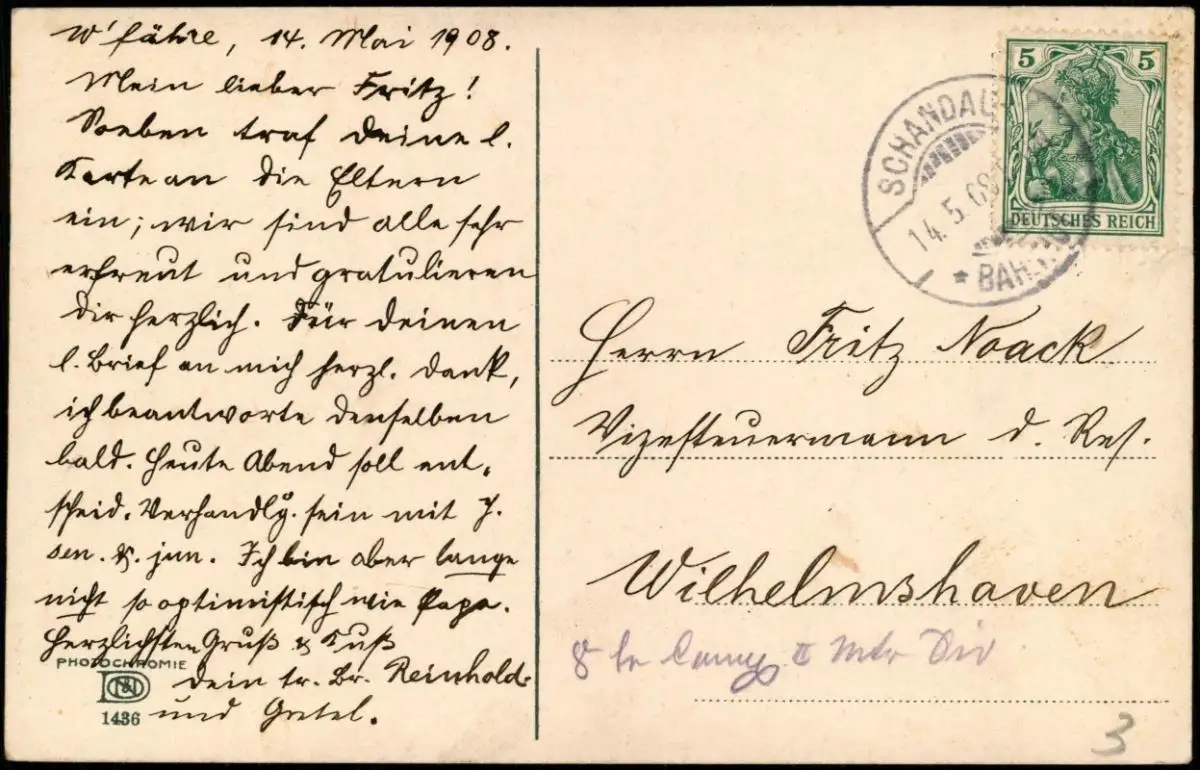 W'fähre, 14. Mai 1908.
Mein lieber Fritz!
Soeben traf Deine l.
Karte an die Eltern
ein; wir sind alle sehr
erfreut und gratulieren
Dir herzlich. Für Deinen
l. Brief an mich herzl. Dank,
ich beantworte denselben
bald. Heute Abend soll ent-
scheid. Verhandlg. sein mit J.
sen. & jun. Ich bin aber lange
nicht so optimistisch wie Papa.
Herzlichsten Gruß & Kuß
Dein tr. Br. Reinhold
und Gretel.
PHOTOCHROMIE
1436
5 5
DEUTSCHES REICH
SCHANDAU
14.5.08
* BAH
Herrn Fritz Noack
Vizesteuermann d. Res.
Wilhelmshaven
8 te Comp II Mtr Div
3